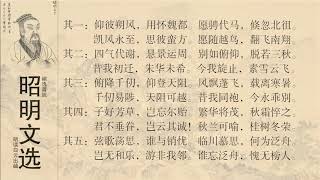 其一：仰彼朔风，用怀魏都。愿骋代马，倏忽北徂。
凯风永至，思彼蛮方。愿随越鸟，翻飞南翔。
其二：四气代谢，悬景运周。别如俯仰，脱若三秋。
昔我初迁，朱华未希。今我旋止，素雪云飞。
其三：俯降千仞，仰登天阻。风飘蓬飞，载离寒暑。
千仞易陟，天阻可越。昔我同袍，今永乖别。
其四：子好芳草，岂忘尔贻。繁华将茂，秋霜悴之。
君不垂眷，岂云其诚！秋兰可喻，桂树冬荣。
其五：弦歌荡思，谁与销忧。临川慕思，何为泛舟。
岂无和乐，游非我邻。谁忘泛舟，愧无榜人。
昭明文选